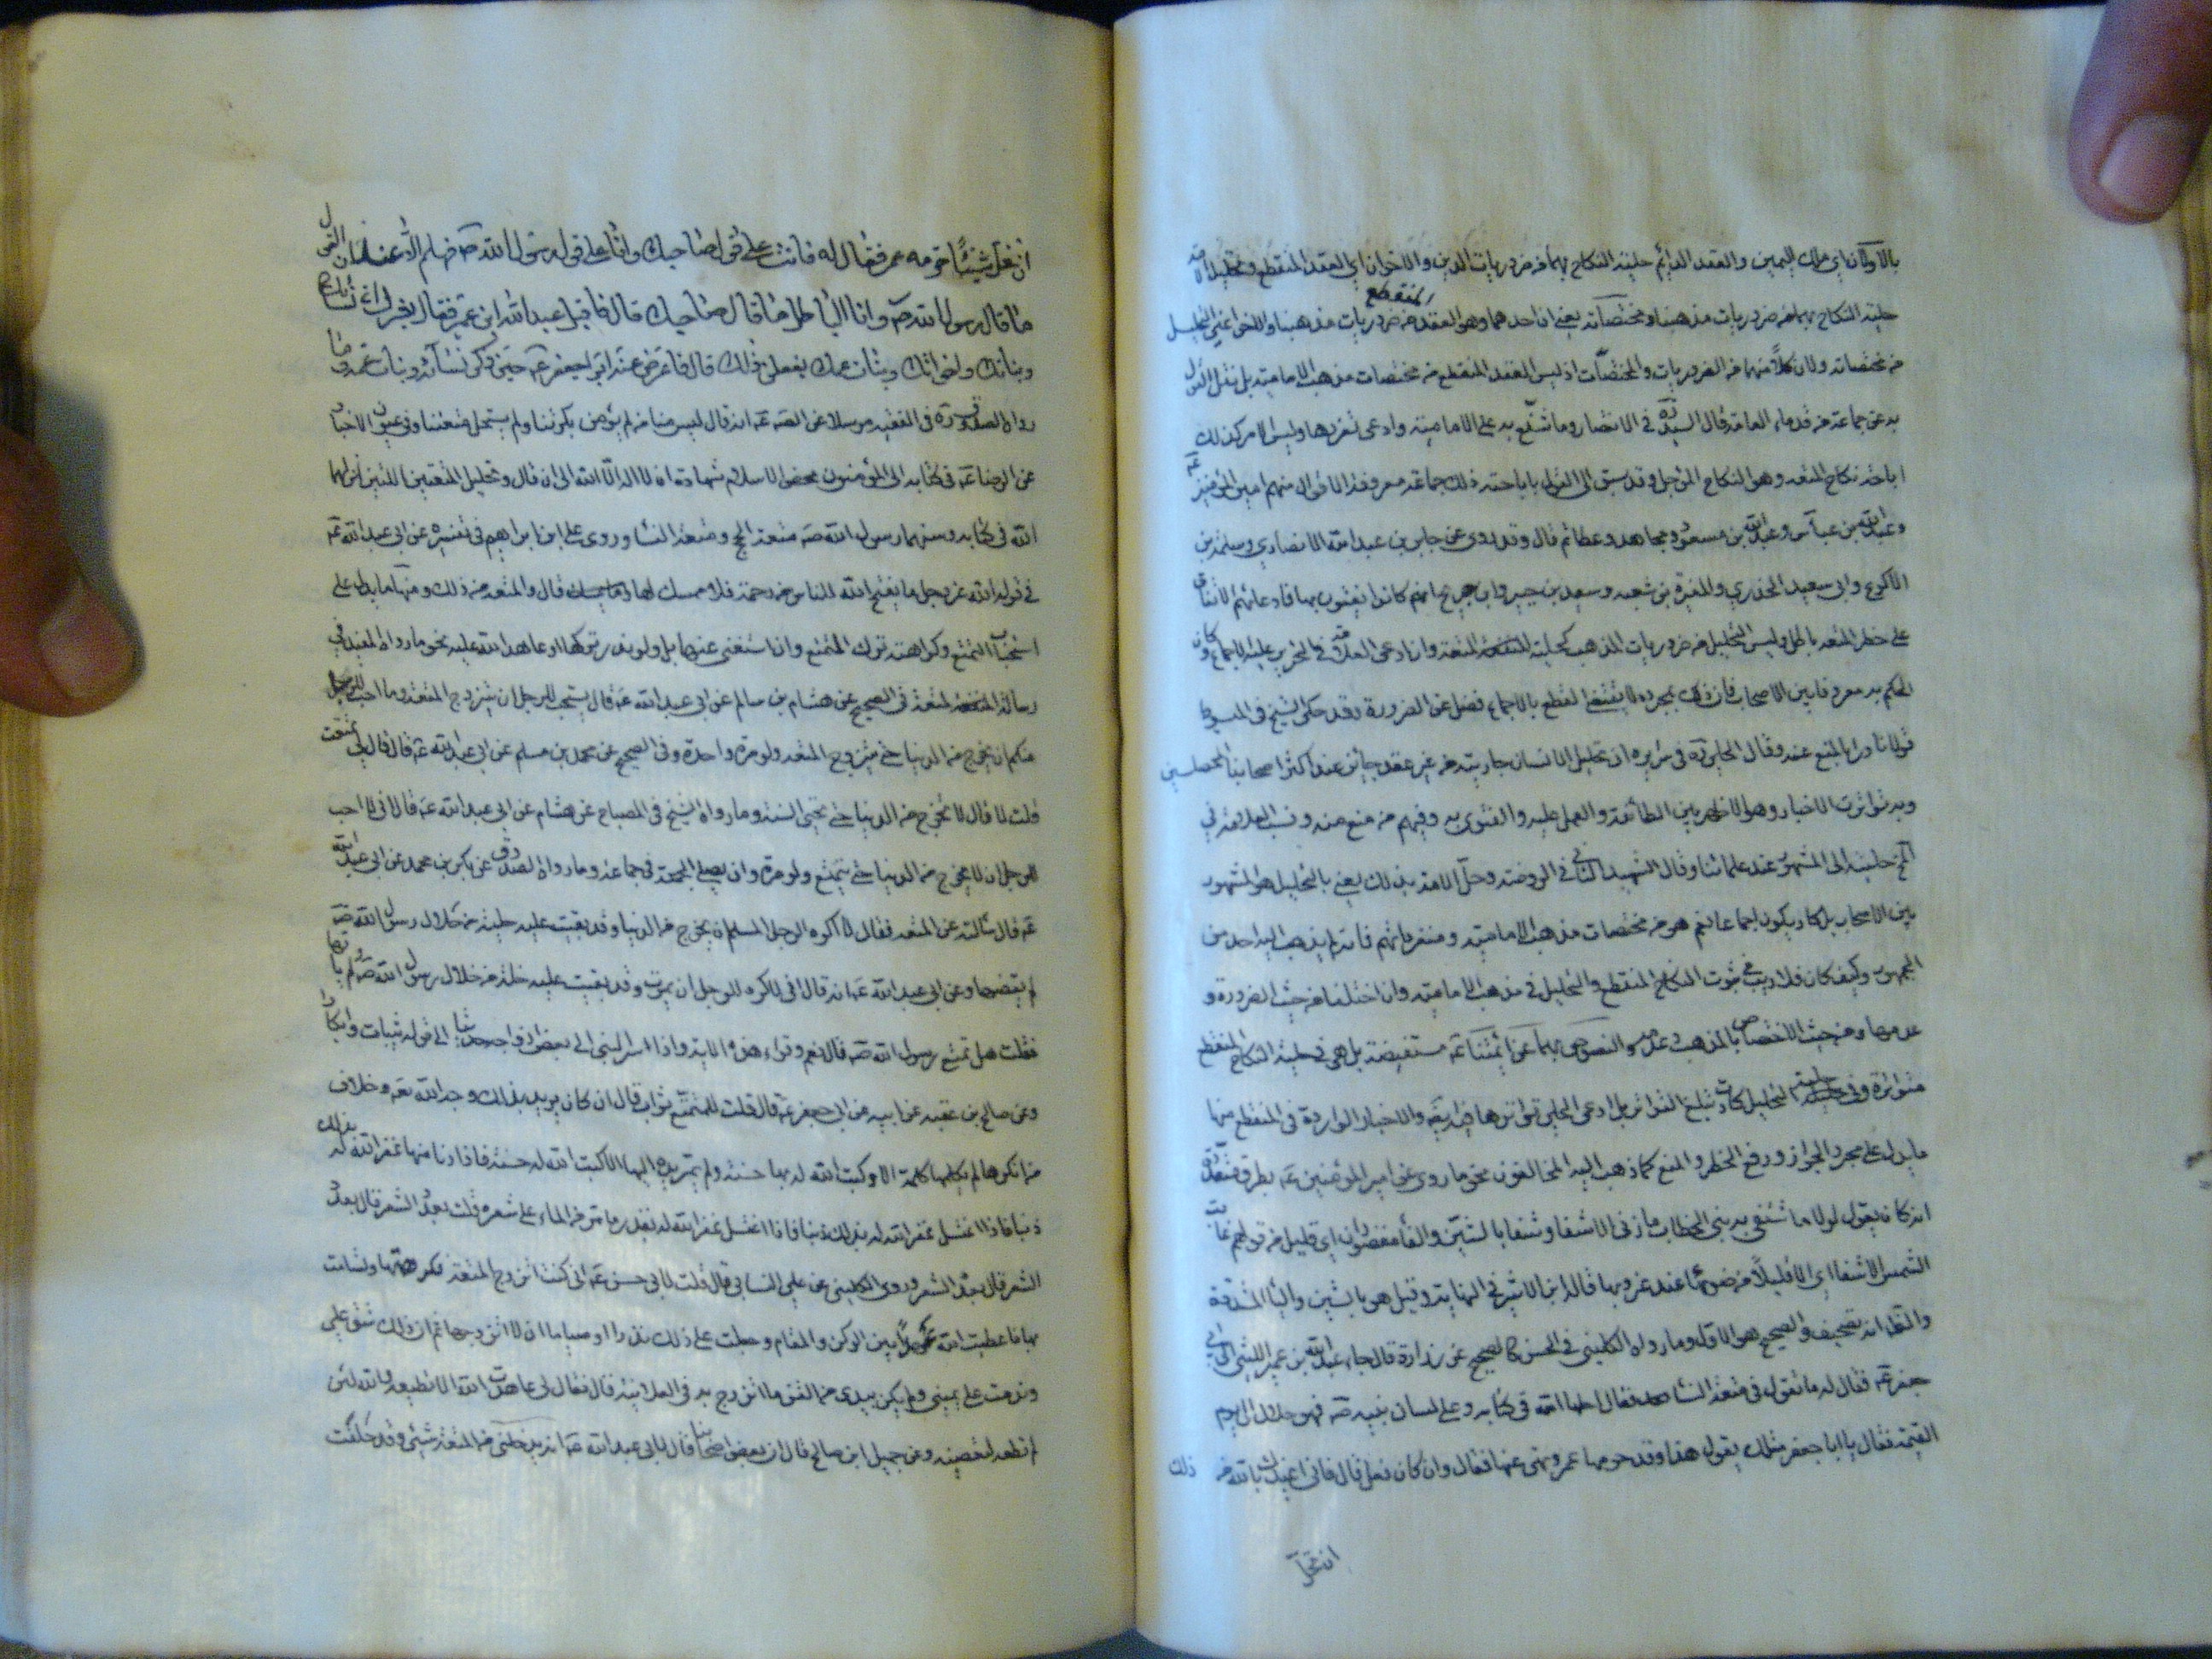 بالاولان اي ملك اليمين والعقد الدائم حلية النكاح بهما من ضروريات الدين والاخران اي العقد المنقطع وتحليل الامة
حلية النكاح بهما من ضروريات مذهبنا ومختصاته يعني ان احدهما وهو العقد المنقطع من ضروريات مذهبنا والاخر اعني التحليل
من مختصاته ولان كلا منهما من الضروريات والمختصات اذ ليس العقد المنقطع من مختصات مذهب الامامية بل نقل القول
به عن جماعة من قدماء العامة قال السيد ره في الانتصار وما شنع به على الامامية وادعى تفردها وليس الامر كذلك
اباحة نكاح المتعه وهو النكاح المؤجل وقد سبق الى القول باباحته ذلك جماعة معروفة الاقوال منهم امير المؤمنين عم
وعبدالله بن عباس وعبدالله بن مسعود ومجاهد وعطا ثم قال وقد روى عن جابر بن عبدالله الانصاري وسلمة بن
الاكوع وابي سعيد الخدري والمغيرة بن شعبه وسعيد بن جبير وابن جريح انهم كانوا يفتون بها فادعائهم الاتفاق
على حظر المتعه باطل وليس التحليل من ضروريات المذهب كحلية المتعة وان ادعى العلامة في التحرير عليه الاجماع وكان
الحكم به معروفا بين الاصحاب فان ذلك بمجرده لا يقتضي القطع بالاجماع فضل عن الضرورة وقد حكى الشيخ في المبسوط
قولا نادرا بالمنع عنه وقال الحلي ره في سرايره ان تحليل الانسان جاريته من غير عقد جائز عند اكثر اصحابنا المحصلين
وبه تواترت الاخبار وهو الاظهر بين الطائفة والعمل عليه والفتوى به وفيهم من منع منه ونسب العلامة في
الخ حليته الى المشهور عند علمائنا وقال الشهيد الثاني في الروضة وحل الامة بذلك يعني بالتحليل هو المشهور
بين الاصحاب بل كاد يكون اجماعا نعم هو من مختصات مذهب الامامية ومنفرداتهم فانه لم يذهب اليه احد من
الجمهور وكيف كان فلا ريب في ثبوت النكاح المنقطع والتحليل في مذهب الامامية وان اختلفا من حيث الضرورة و
عدمها ومن حيث الاختصاص بالمذهب وعدمه والنصوص بهما عن ائمتنا عم مستفيضة بل هي في حلية النكاح المنقطع
متواترة وفي حلية التحليل كادت تبلغ التواتر بل ادعى الحلي تواترها فيه ايضا والاخبار الواردة في المنقطع منها
ما يدل على مجرد الجواز ورفع الحظر والمنع كما ذهب اليه المخالفون نحو ما روى عن امير المؤمنين عم بطرق متعددة
انه كان يقول لولا ما سبقني به بني الخطاب ما زنى الا شفا وشفا بالشين والفا مقصوران اي قليل من قولهم غابت
الشمس الا شفا اي الا قليلا من ضوئها عند غروبها قاله ابن الاثير في النهاية وقيل هو بالشين واليا المشددة
والظ انه تصحيف والصحيح هو الاول وما رواه الكليني في الحسن كالصحيح عن زرارة قال جاء عبدالله بن عمير الليثي الى ابي
جعفر عم فقال له ما تقول في متعة النسا فقال احلها الله في كتابه وعلى لسان نبيه ص فهو حلال الى يوم
القيمة فقال يا ابا جعفر مثلك يقول هذا وقد حرمها عمر ونهى عنها فقال وان كان فعل قال فاني اعيذك بالله من ذلك
ان تحل
ان تحل شيئا حرمه عمر فقال له فانت على قول صاحبك وانا على قول رسول الله ص فهلم الاعنك ان القول
ما قال رسول الله ص وان الباطل ما قال صاحبك قال فاقبل عبدالله ابن عمير فقال يسرك ان نسائك
وبناتك واخواتك وبنات عمك يفعلن ذلك قال فاعرض عنه ابو جعفر عم حين ذكر نسائه وبنات عمه وما
رواه الصدوق ره في الفقيه مرسلا عن الص عم انه قال ليس منا من لم يؤمن بكرتنا ولم يستحل متعتنا وفي عيون الاخبار
عن الرضا عم في كتابه الى المؤمنون محض الاسلام شهادة ان لا اله الا الله الى ان قال وتحليل المتعتين اللتين انزلهما
الله في كتابه وسنهما رسول الله ص متعة الحج ومتعة النسا وروى علي ابن ابراهيم في تفسيره عن ابي عبدالله عم
في قول الله عز وجل ما يفتح الله للناس من رحمة فلا ممسك لها قال والمتعه من ذلك ومنها ما يدل على
استحباب التمتع وكراهته ترك التمتع وان استغنى عنها بل ولو نذر تركها او عاهد الله عليه نحو ما رواه المفيد في
رسالة المتعة في الصحيح عن هشام بن سالم عن ابي عبدالله عم قال يستحب للرجل ان يتزوج المتعة وما احب للرجل
منكم ان يخرج من الدنيا حتى يتزوج المتعه ولو مرة واحدة وفي الصحيح عن محمد بن مسلم عن ابي عبدالله عم قال قال لي تمتعت
قلت لا قال لا تخرج من الدنيا حتى تحيي السنة وما رواه الشيخ في المصباح عن هشام عن ابي عبدالله عم قال اني لا احب
للرجل ان لا يخرج من الدنيا حتى يتمتع ولو مرة وان يصلي الجمعة في جماعة وما رواه الصدوق عن بكر بن محمد عن ابي عبدالله
عم قال سألته عن المتعه فقال لاكره الرجل المسلم ان يخرج من الدنيا وقد بقيت عليه خلة من خلال رسول الله ص
لم يقضها وعن ابي عبدالله عم انه قال اني لاكره للرجل ان يموت وقد بقيت عليه خلة من خلال رسول الله ص لم يأتها
فقلت هل تمتع رسول الله ص قال نعم وقراء هذه الاية واذا اسر النبي الى بعض ازواجه حديثا الى قوله ثيبات وابكارا
وعن صالح بن عقبه عن ابيه عن ابي جعفر عم قال قلت للمتمتع ثواب قال ان كان يريد بذلك وجه الله تع وخلاف
من انكرها لم يكلمها كلمة الا وكتب الله له بها حسنة ولم يمد يده اليها الا كتب الله له حسنة فاذا دنا منها غفر الله له بذلك
ذنبا فاذا اغتسل غفر الله له بقدر ما مر من الماء على شعره قلت بعدد الشعر قال بعدد
الشعر وروى الكليني عن علي السائي قال قلت لابي حسن عم اني كنت اتزوج المتعة فكرهتها وتشامت
بها فاعطيت الله عهدا بين الركن والمقام وجعلت على ذلك نذرا او صياما ان لا اتزوجها ثم ان ذلك شق علي
وندمت على يميني ولم يكن بيدي من القوة ما اتزوج به في العلانية قال فقال لي عاهدت الله الا تطيعه والله لئن
لم تطعه لتعصينه وعن جميل ابن صالح قال ان بعض اصحابنا قال لابي عبدالله عم انه يدخلني من المتعة شيئ وقد حلفت